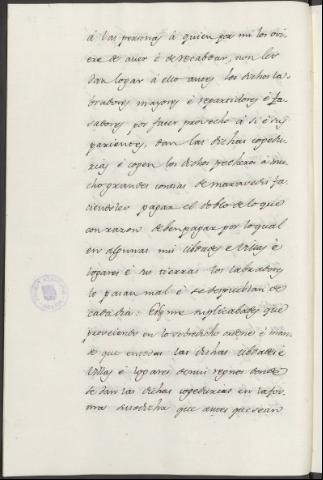 á las personas á quien por mi los ovi
ere de aver é de recabdar, non les
dan logar á ello antes los dichos la
bradores mayores é repartidores é fa
sadores por facer provecho á si é á sus
parientes, dan las dichas copedu
rias é cogen los dichos pechos á mu
cho grandes contias de maravedis fa
ciendoles pagar el doblo de lo que
con razon deben pagar por lo qual
en algunas mis cibdades é villas é
logares é sus tierras los labradores
lo pasan mal é se despueblan de
cada dia: E me suplicabades que
proveiendo en lo sobredicho ordene é man
de que en todas las dichas cibdades é
villas é logares de mis regnos donde
se dan las dichas copedurias en la for
ma susodicha que antes que sean